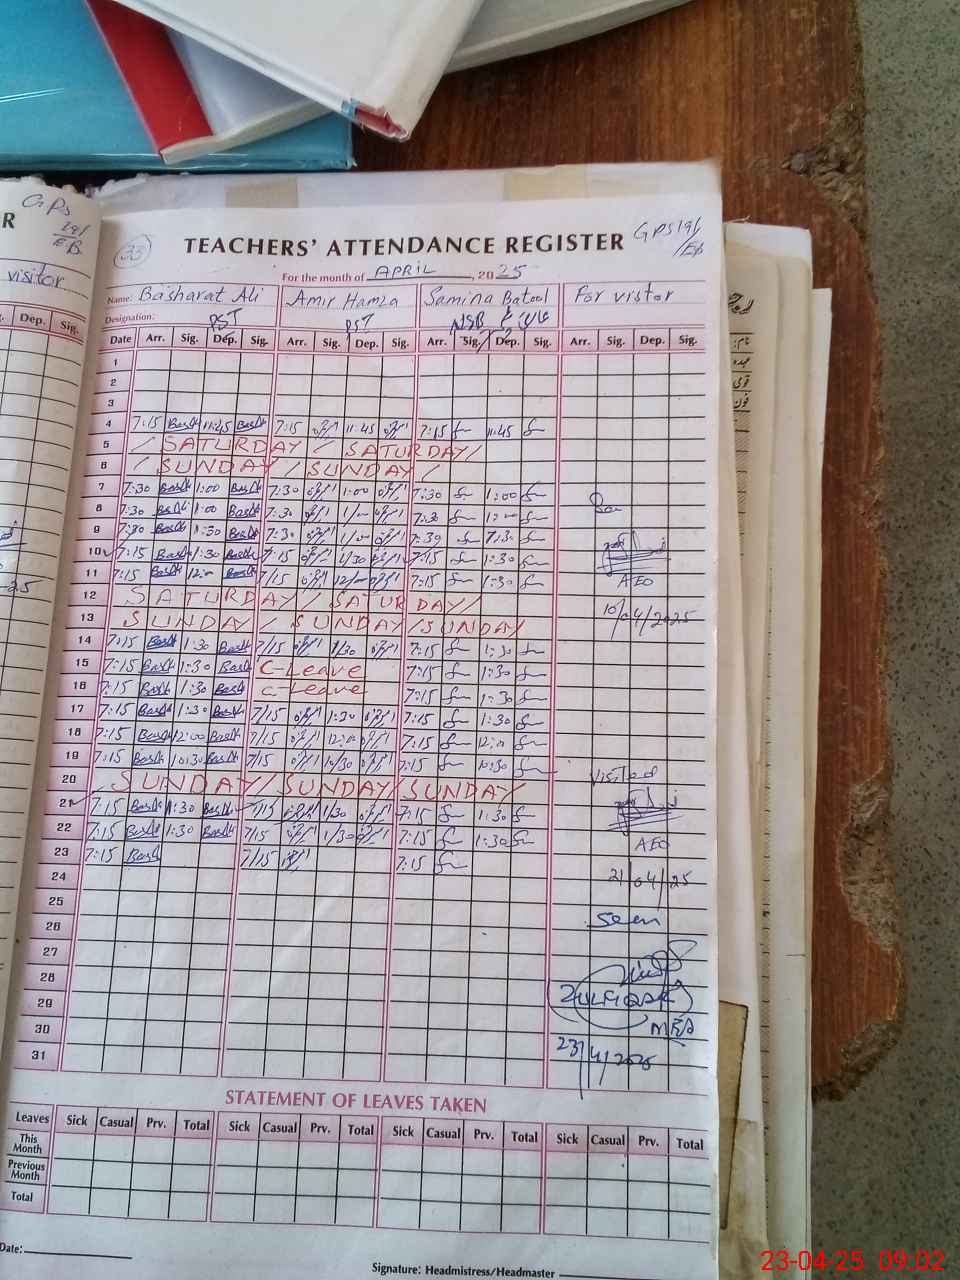 GPs
191/
EB
R
visitor
Dep. Sig.
33
TEACHERS' ATTENDANCE REGISTER
GPS 191/
/EB
For the month of APRIL, 2025
Name: Basharat Ali Amir Hamza Samina Batool For vistor
Designation: PST PST NSB
Date Arr. Sig. Dep. Sig. Arr. Sig. Dep. Sig. Arr. Sig. Dep. Sig. Arr. Sig. Dep. Sig.
1
2
3
4 7:15 Bash 11:45 Bash 7:15 11:45 7:15 11:45
5 / SATURDAY / SATURDAY /
6 / SUNDAY / SUNDAY /
7 7:30 Bash 1:00 Bash 7:30 1:00 7:30 1:00
8 7:30 Bash 1:00 Bash 7:30 1/00 7:30 1:00
9 7:30 Bash 1:30 Bash 7:30 1/00 7:30 1:30
10 7:15 Bash 1:30 Bash 7:15 1/30 7:15 1:30
11 7:15 Bash 12:00 Bash 7/15 12/00 7:15 1:30
AEO
12 SATURDAY / SATURDAY /
13 SUNDAY / SUNDAY / SUNDAY
10/04/2025
14 7:15 Bash 1:30 Bash 7/15 1/30 7:15 1:30
15 7:15 Bash 1:30 Bash C-Leave 7:15 1:30
16 7:15 Bash 1:30 Bash C-Leave 7:15 1:30
17 7:15 Bash 1:30 Bash 7/15 1:30 7:15 1:30
18 7:15 Bash 12:00 Bash 7/15 12:00 7:15 12:00
19 7:15 Bash 10:30 Bash 7/15 10/30 7:15 10:30
20 SUNDAY / SUNDAY / SUNDAY
Visited
21 7:15 Bash 1:30 Bash 7/15 1/30 7:15 1:30
22 7:15 Bash 1:30 Bash 7/15 1/30 7:15 1:30
AEO
23 7:15 Bash 7/15 7:15
24
21/04/25
25
26
Seen
27
28
29
ZULFIQAR
30
MEA
31
23/4/2025
STATEMENT OF LEAVES TAKEN
Leaves Sick Casual Prv. Total Sick Casual Prv. Total Sick Casual Prv. Total Sick Casual Prv. Total
This Month
Previous Month
Total
Date:
Signature: Headmistress/Headmaster
23-04-25 09:02